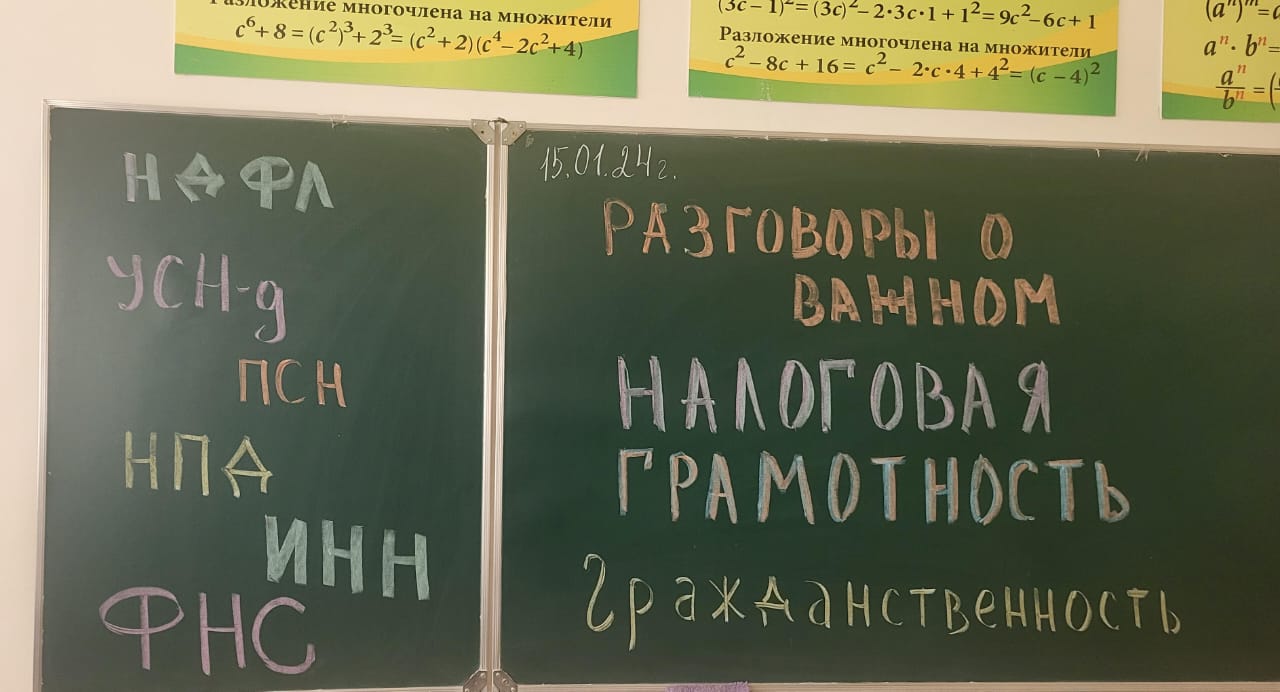 Разложение многочлена на множители
c⁶ + 8 = (c²)³ + 2³ = (c² + 2)(c⁴ − 2c² + 4)
(3c − 1)² = (3c)² − 2·3c·1 + 1² = 9c² − 6c + 1
Разложение многочлена на множители
c² − 8c + 16 = c² − 2·c·4 + 4² = (c − 4)²
(aⁿ)ᵐ =
aⁿ · bⁿ =
aⁿ/bⁿ = (
НДФЛ
УСН-д
ПСН
НПД
ИНН
ФНС
15.01.24 г.
РАЗГОВОРЫ О
ВАЖНОМ
НАЛОГОВАЯ
ГРАМОТНОСТЬ
Гражданственность